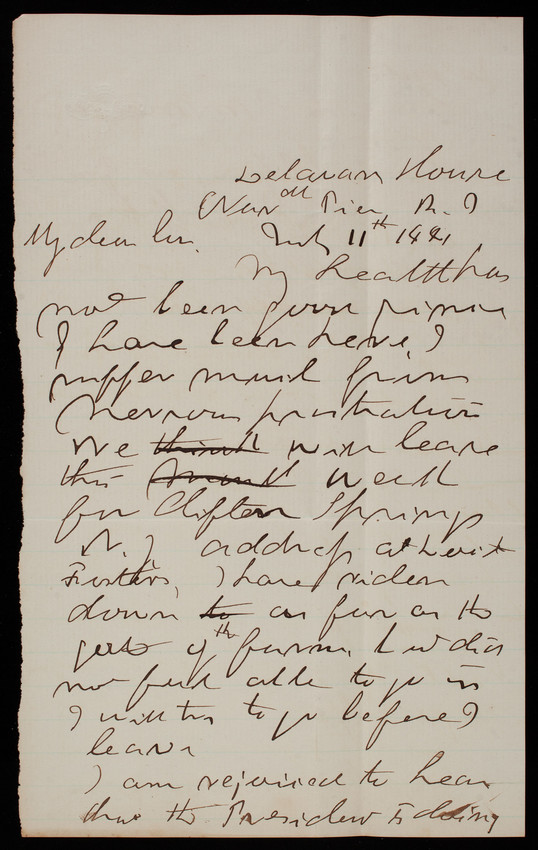 Delavan House
Narr att Pier R. I
My dear Sir. July 11th 1881
My health has
not been good since
I have been here, I
suffer much from
Nervous prostration
We think will leave
this week
for Clifton Springs
N. Y address at
Fosters, I have riden
down to as far as the
gate of the farm, but did
not feel able to go in
I will try to go before I
leave
I am rejoiced to hear
that the President is doing